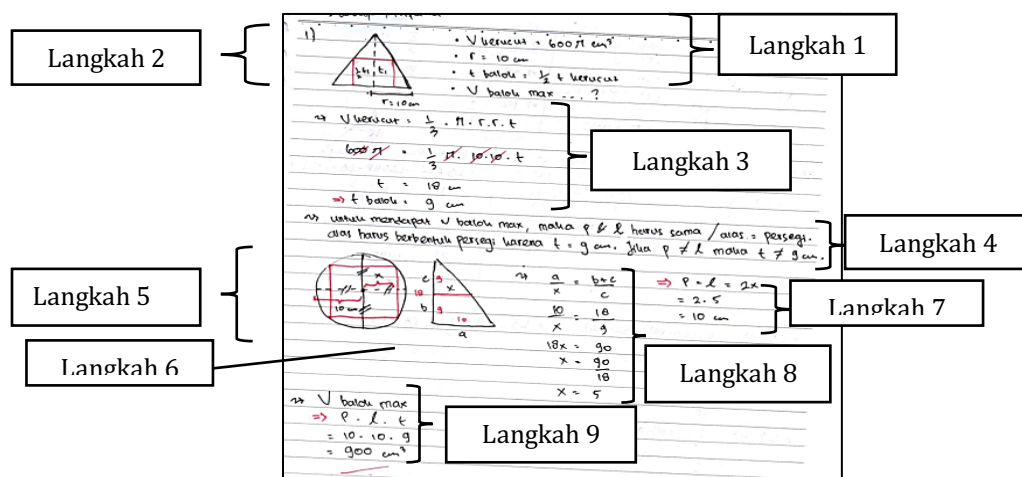 Langkah 2
Langkah 1
1)
• V kerucut = 600 π cm³
• r = 10 cm
• t balok = 1/2 t kerucut
• V balok max ... ?
1/2 t₁ t₁
r = 10 cm
~> V kerucut = 1/3 . π . r . r . t
600 π = 1/3 π . 10 . 10 . t
t = 18 cm
=> t balok = 9 cm
Langkah 3
~> untuk mendapat V balok max, maka p & l harus sama / alas = persegi.
alas harus berbentuk persegi karena t = 9 cm. Jika p ≠ l maka t ≠ 9 cm.
Langkah 4
Langkah 5
x
10 cm
c 9 x
18
b 9 10
a
~> a/x = b+c/c
10/x = 18/9
18x = 90
x = 90/18
x = 5
=> p = l = 2x
= 2 . 5
= 10 cm
Langkah 7
Langkah 6
Langkah 8
~> V balok max
=> p . l . t
= 10 . 10 . 9
= 900 cm³
Langkah 9